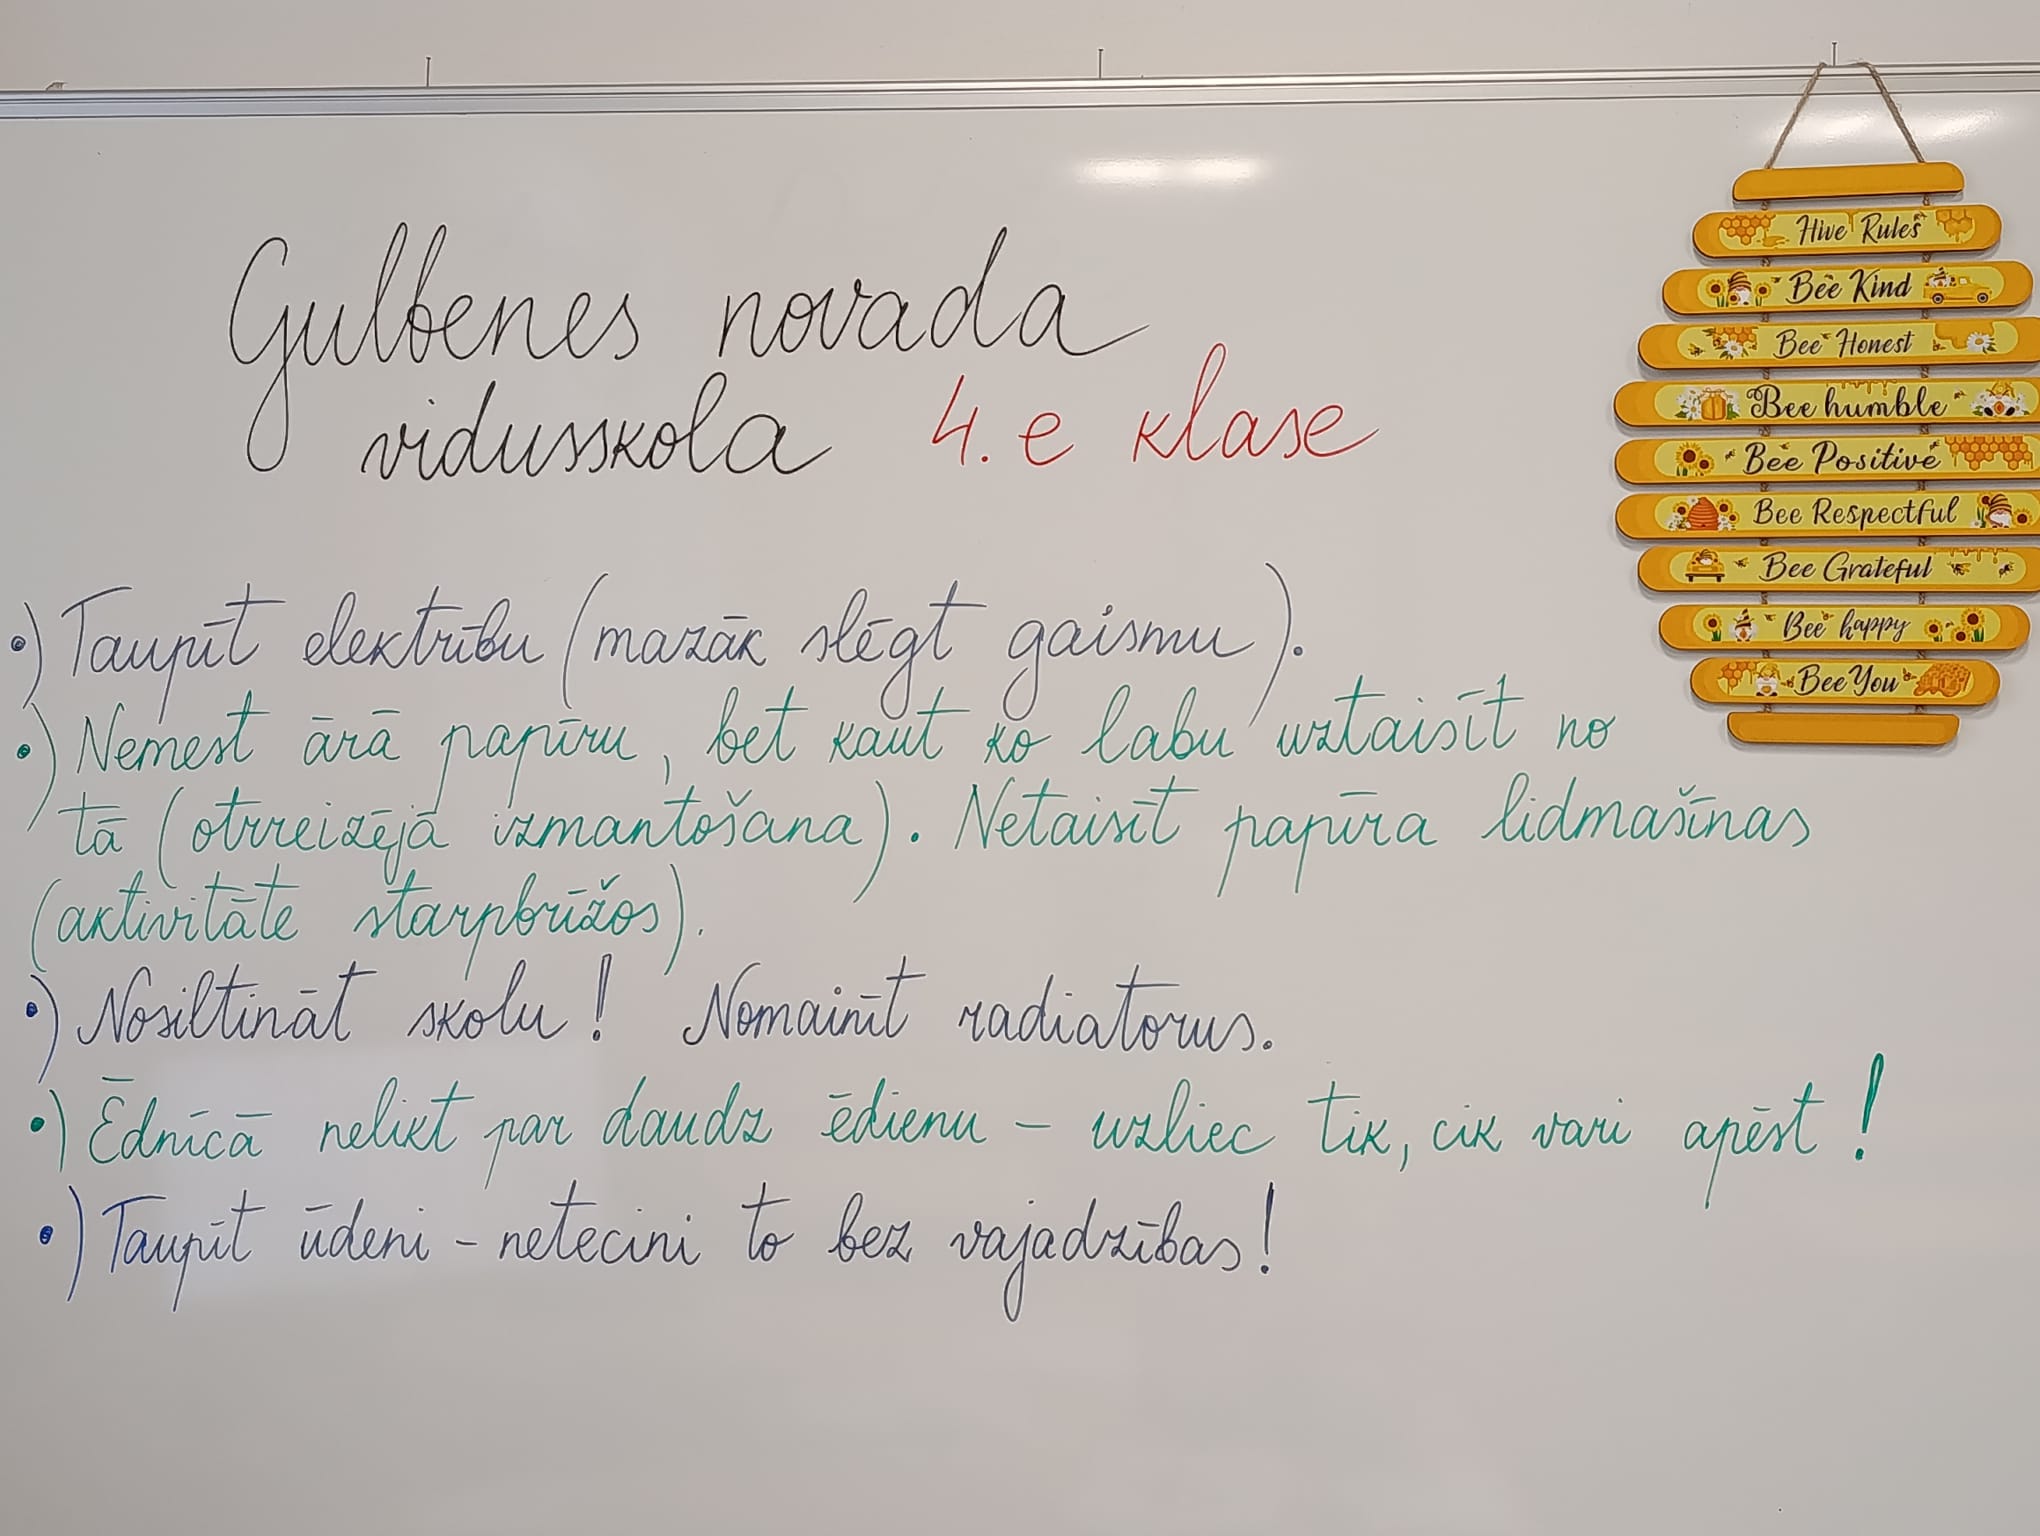 Gulbenes novada
vidusskola 4. e klase
•) Taupīt elektrību (mazāk slēgt gaismu).
•) Nemest ārā papīru, bet kaut ko labu uztaisīt no
tā (otrreizējā izmantošana). Netaisīt papīra lidmašīnas
(aktivitāte starpbrīžos).
•) Nosiltināt skolu! Nomainīt radiatorus.
•) Ēdnīcā nelikt par daudz ēdienu – uzliec tik, cik vari apēst!
•) Taupīt ūdeni – netecini to bez vajadzības!
Hive Rules
Bee Kind
Bee Honest
Bee humble
Bee Positive
Bee Respectful
Bee Grateful
Bee happy
Bee You